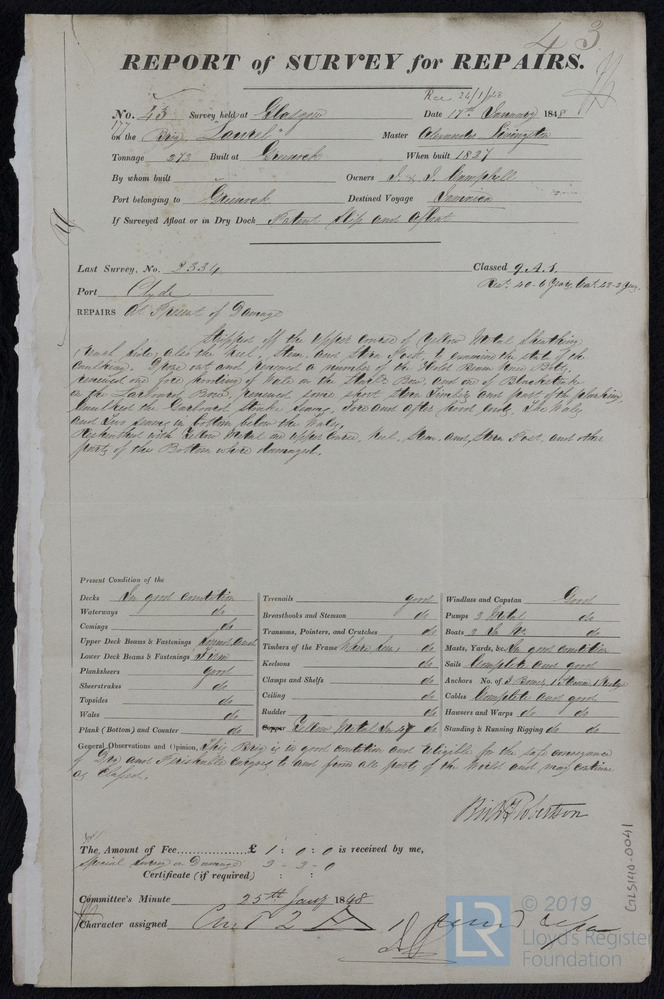 43
REPORT of SURVEY for REPAIRS.
Rec 24/1/48
No. 43 Survey held at Glasgow Date 17th January 1848
on the Brig "Laurel" Master Alexander Livingston
Tonnage 273 Built at Greenock When built 1827
By whom built Owners J. & J. Campbell
Port belonging to Greenock Destined Voyage Jamaica
If Surveyed Afloat or in Dry Dock Patent Slip and Afloat
Last Survey, No. 2334 Classed 9 A.1.
Port Clyde
REPAIRS At Present of Damage
Stripped off the upper course of Yellow Metal Sheathing
Each side, also the Keel, Stem, and Stern Post, to examine the state of the
Caulking. Drove out and renewed a number of the Hold Beam Knee Bolts,
renewed one piece of Wale on the Starbd Bow, and one of Blackstrake
on the Larboard Bow, renewed some short Stern Timbers and part of the planking,
Caulked the Garboard Strake Seams, Fore and after hood ends, The Wales
and Two Seams in bottom below the Wales,
Resheathed with Yellow Metal on upper course, Keel, Stem, and Stern Post, and other
parts of the Bottom where damaged.
Present Condition of the
Decks In good condition
Waterways do
Comings do
Upper Deck Beams & Fastenings
Lower Deck Beams & Fastenings Firm
Planksheers good
Sheerstrakes do
Topsides do
Wales do
Plank (Bottom) and Counter do
Treenails good
Breasthooks and Stemson do
Transoms, Pointers, and Crutches do
Timbers of the Frame Where seen do
Keelsons do
Clamps and Shelfs do
Ceiling do
Rudder do
Copper Yellow Metal do
Windlass and Capstan Good
Pumps 2 Metal do
Boats 2 In No. do
Masts, Yards, &c. In good condition
Sails Complete and good
Anchors No. of 3 Bower, 1 Stream, 1 Kedge
Cables Complete and good
Hawsers and Warps do do
Standing & Running Rigging do do
General Observations and Opinion, This Brig is in good condition and Eligible for the safe conveyance
of Dry and Perishable cargoes to and from all parts of the World and may continue
as Classed.
Robertson
The Amount of Fee £ 1 : 0 : 0 is received by me,
Special Survey on Damage 2 - 2 - 0
Certificate (if required) : :
Committee's Minute 25th Jany 1848
Character assigned
GLS140-0041
© 2019
LR Lloyd's Register
Foundation